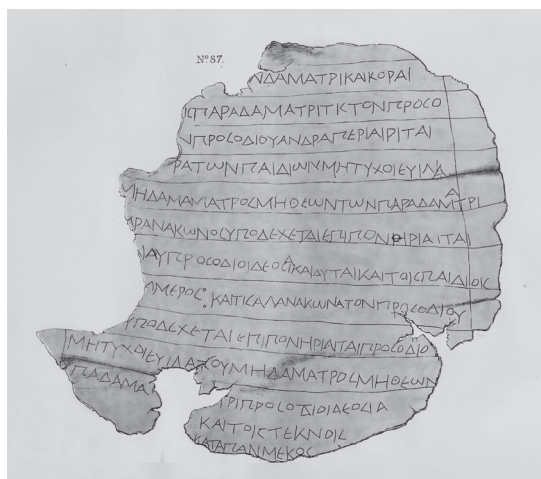 Nº 87.
ΝΔΑΜΑΤΡΙΚΑΙΚΟΡΑΙ
ΙΣΠΑΡΑΔΑΜΑΤΡΙΤΙΚΤΟΝΠΡΟΣΟ
ΝΠΡΟΣΟΔΙΟΥΑΝΔΡΑΠΕΡΙΑΙΡΙΤΑΙ
ΡΑΤΩΝΠΑΙΔΙΩΝΜΗΤΥΧΟΙΕΥΙΛΑ
ΜΗΔΑΜΑΜΑΤΡΟΣΜΗΘΕΩΝΤΩΝΠΑΡΑΔΑΜΑΤΡΙ
ΑΡΑΝΑΚΩΝΟΣΥΠΟΔΕΧΕΤΑΙΕΠΙΠΟΝΗΡΙΑΙΤΑΙ
ΝΑΥΠΡΟΣΟΔΙΟΙΔΕΟΣΙΑΚΑΙΑΥΤΑΙΚΑΙΤΟΙΣΠΑΙΔΙΟΙΣ
ΜΜΕΡΟΣ: ΚΑΙΤΙΣΑΛΑΝΑΚΩΝΑΤΟΝΠΡΟΣΟΔΙΟΥ
ΥΠΟΔΕΧΕΤΑΙΕΠΙΠΟΝΗΡΙΑΙΤΑΙΠΡΟΣΟΔΙΟ
ΜΗΤΥΧΟΙΕΥΙΛΑΤΟΥΜΗΔΑΜΑΤΡΟΣΜΗΘΕΩΝ
ΠΑΔΑΜΑ ΤΡΙΠΡΟΣΟΔΙΟΙΔΕΟΣΙΑ
ΚΑΙΤΟΙΣΤΕΚΝΟΙΣ
ΚΑΤΑΠΑΝΜΕΚΟΣ